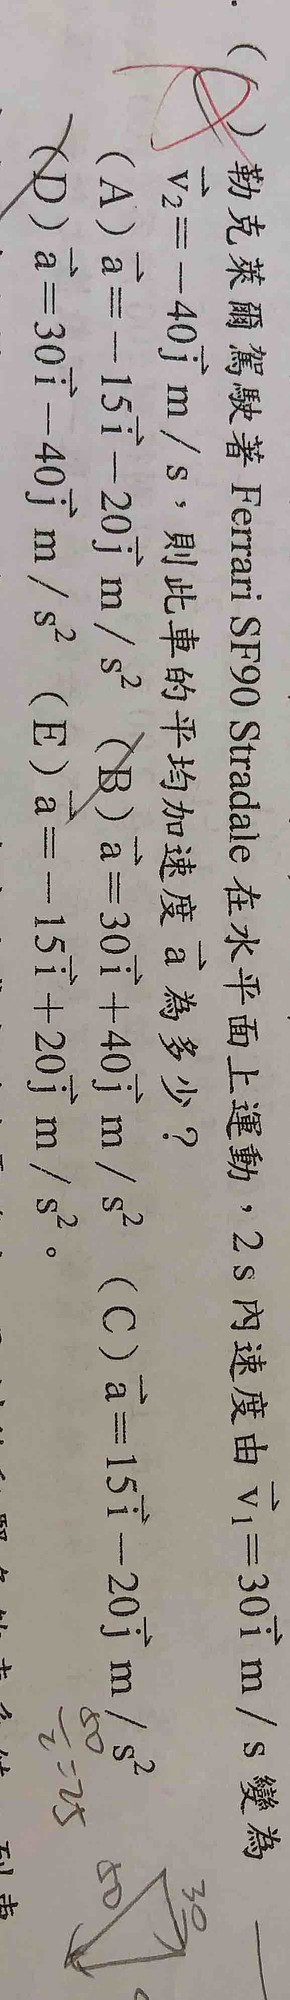 ( ) 勒克萊爾駕駛著 Ferrari SF90 Stradale 在水平面上運動，2 s 內速度由 v⃗₁=30i⃗ m／s 變為
v⃗₂=−40j⃗ m／s，則此車的平均加速度 a⃗ 為多少？
(A) a⃗=−15i⃗−20j⃗ m／s² (B) a⃗=30i⃗+40j⃗ m／s² (C) a⃗=15i⃗−20j⃗ m／s²
(D) a⃗=30i⃗−40j⃗ m／s² (E) a⃗=−15i⃗+20j⃗ m／s²。
50/2=25
30
50